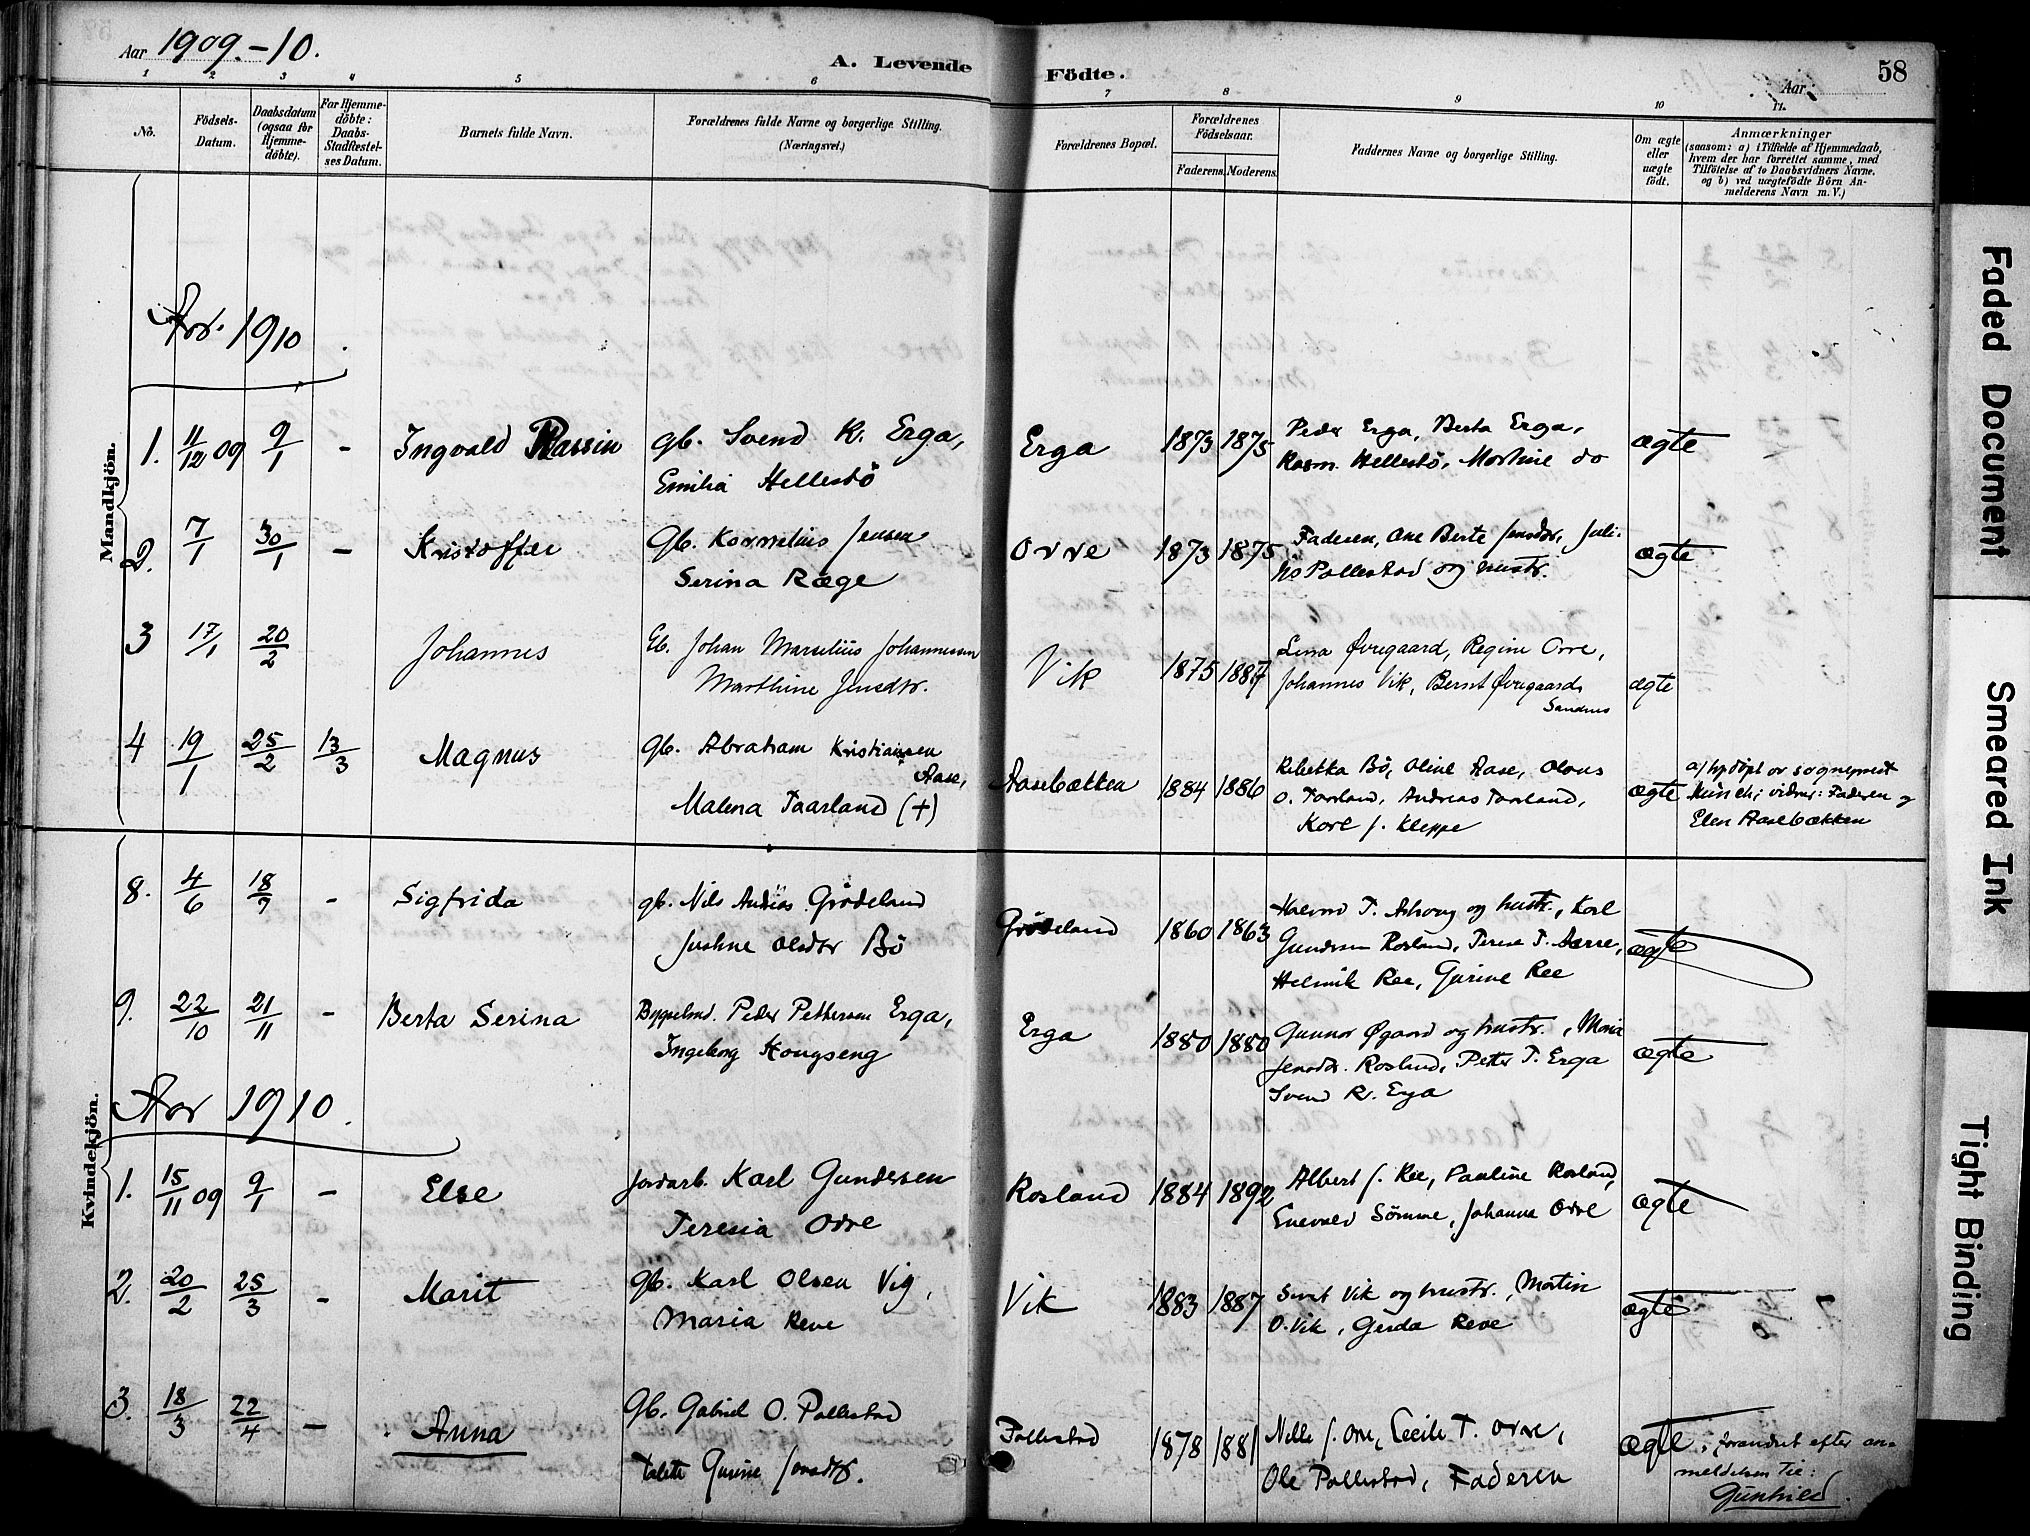 Aar 1909.-10.
A. Levende Födte.
58
Aar
1 2 3 4 5 6 7 8 9 10 11.
No.
Födsels-Datum.
Daabsdatum (ogsaa for Hjemme-döbte).
For Hjemme-döbte: Daabs-Stadfæstel-ses Datum.
Barnets fulde Navn.
Forældrenes fulde Navne og borgerlige Stilling. (Næringsvei.)
Forældrenes Bopæl.
Forældrenes Födselsaar.
Faderens. Moderens.
Faddernes Navne og borgerlige Stilling.
Om ægte eller uægte födt.
Anmærkninger
(saasom: a) i Tilfælde af Hjemmedaab,
hvem der har forrettet samme, med
Tilföielse af to Daabsvidners Navne,
og b) ved uægtefödte Börn An-
melderens Navn m. V.)
Mandkjön.
Aar 1910.
1. 11/12 09 9/1 - Ingvald gb. Svend R. Erga, Erga 1873 1875 Peder Erga, Berta Erga, ægte
Emilia Hellestö Rasm. Hellestö, do
2. 7/1 30/1 - Kristoffer Gb. Kornelius Jensen Orre 1873 1875 Faderen, Ane Berte Jensdr, Juli- ægte
Serina Ræge us Pollestad og hustr.
3 17/1 20/2 Johannes Gb. Johan Marselius Johannessen Vik 1875 1887 Lina Øvregaard, Regine Orre, ægte
Marthine Jensdtr. Johannes Vik, Bernt Øvregaard,
Sandnes
4 19/1 25/2 13/3 Magnus Gb. Abraham Kristiansen Aasebækken 1884 1886 Rebekka Bö, Oline Aase, Olaus ægte a/ hjdöpt av sogneprest
Aase,
Malena Taarland (+) O. Taarland, Andreas Taarland, Münch; vidner: Faderen og
Karl J. Kleppe Elen Aasebækken
Kvindekjön.
8. 4/6 18/7 - Sigfrida gb. Nils Andreas Grödeland Grödeland 1860 1863 T. og hustr., Karl ægte
Olsdtr Bö Gundersen Rosland, Terese T. Aarre,
Helmik Ree, Gurine Ree
9. 22/10 21/11 - Berta Serina Peder Pettersen Erga, Erga 1880 1880 Gunnar Øgaard og hustr., Maria ægte
Ingeborg Kongseng Jensdtr. Rosland, Petter T. Erga
Svend R. Erga
Aar 1910.
1. 15/11 09 9/1 - Else Jordarb. Karl Gundersen Rosland 1884 1892 Albert J. Ree, Pauline Rosland, ægte
Teresia Orre Enevald Sömme, Johanna Orre
2. 20/2 25/3 - Marit gb. Karl Olsen Vig, Vik 1883 1887 Vik og hustr., Martin ægte
Maria Reve O. Vik, Gerda Reve
3. 18/3 22/4 - Anna Gb. Gabriel O. Pollestad Pollestad 1878 1881 Nille J. Orre, Cecile T. Orre, ægte, forandret efter an-
Talette Gurine Jonsdtr. Ole Pollestad, Faderen meldelsen til:
Gunhild.
Faded Document
Smeared Ink
Tight Binding